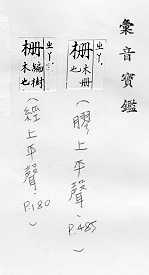 彙音寶鑑
柵 ㄓㄚˋ
木冊也
(膠上平聲, P.485)
柵 ㄓㄚˋ
編樹木也
(經上平聲, P.180)